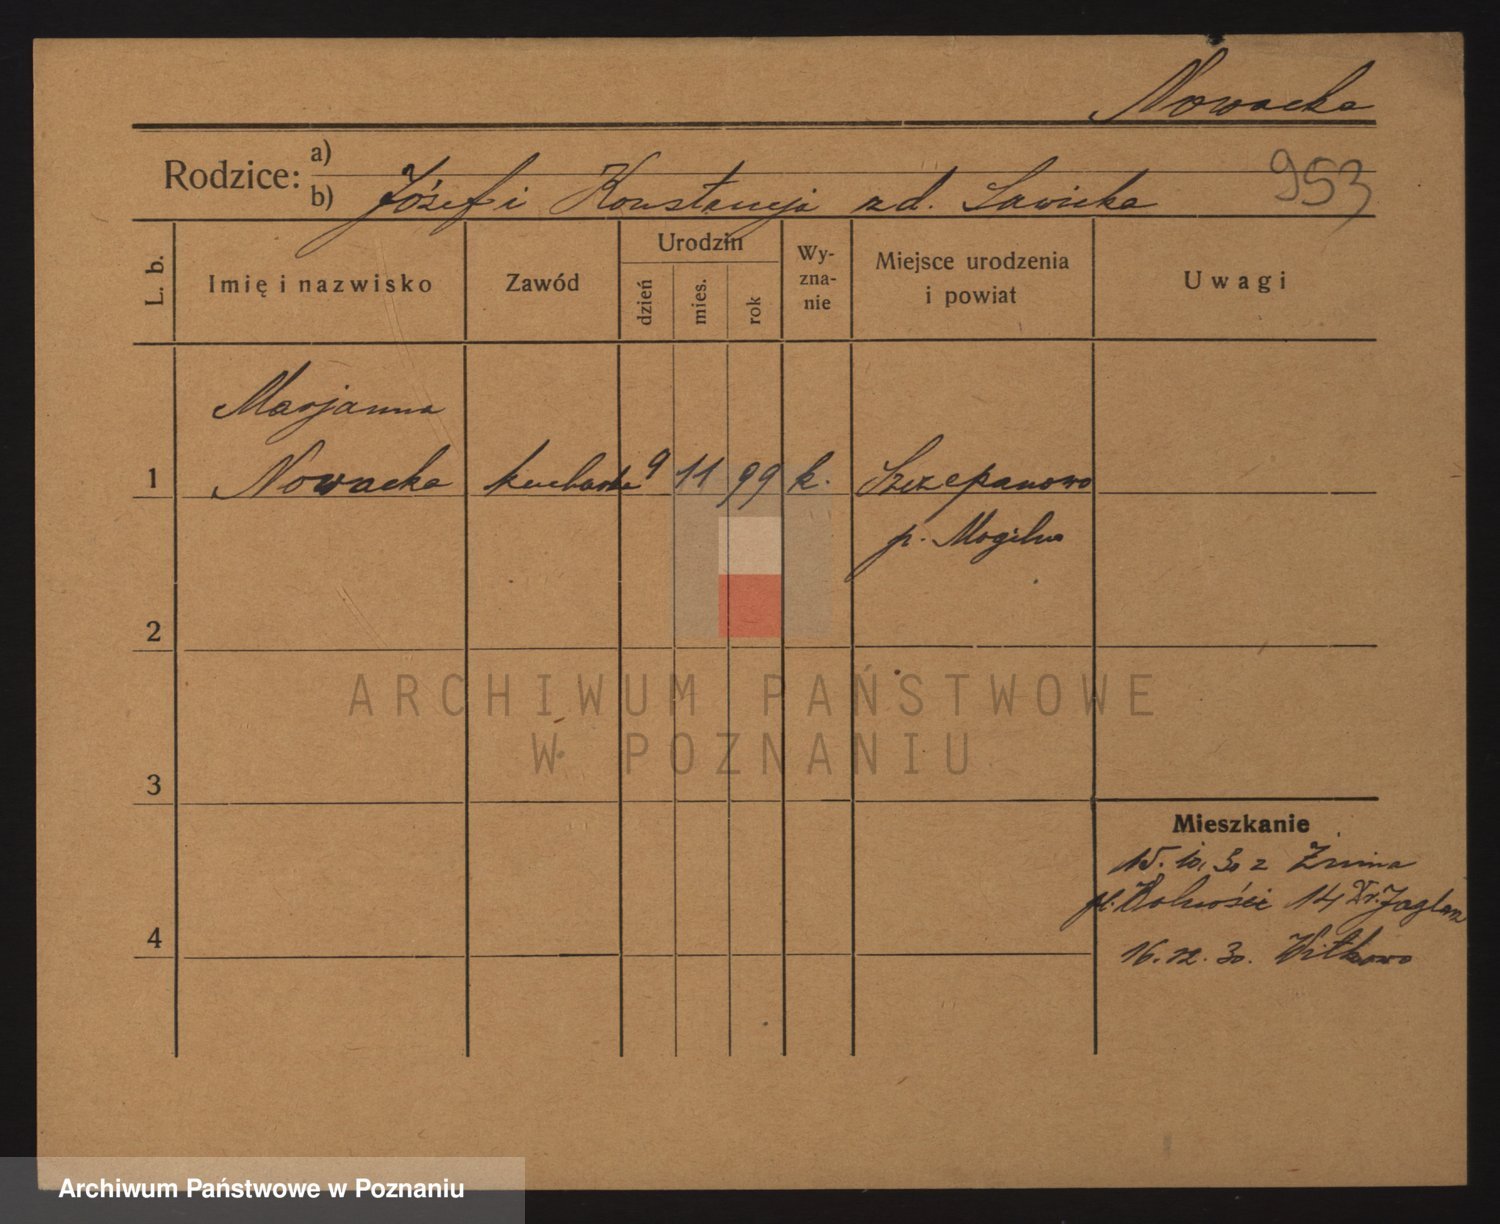 Nowacka
Rodzice: a)
b) Józef i Konstancja zd. Sawicka
953
L. b.
Imię i nazwisko
Zawód
Urodzin
dzień
mies.
rok
Wy-
zna-
nie
Miejsce urodzenia
i powiat
Uwagi
Marjanna
1 Nowacka kucharka 9 11 99 k. Szczepanowo
p. Mogilno
2
ARCHIWUM PAŃSTWOWE
W POZNANIU
3
Mieszkanie
15. 10. 30 z Żnina
pl. Wolności 14
4
16. 12. 30. Witkowo
Archiwum Państwowe w Poznaniu